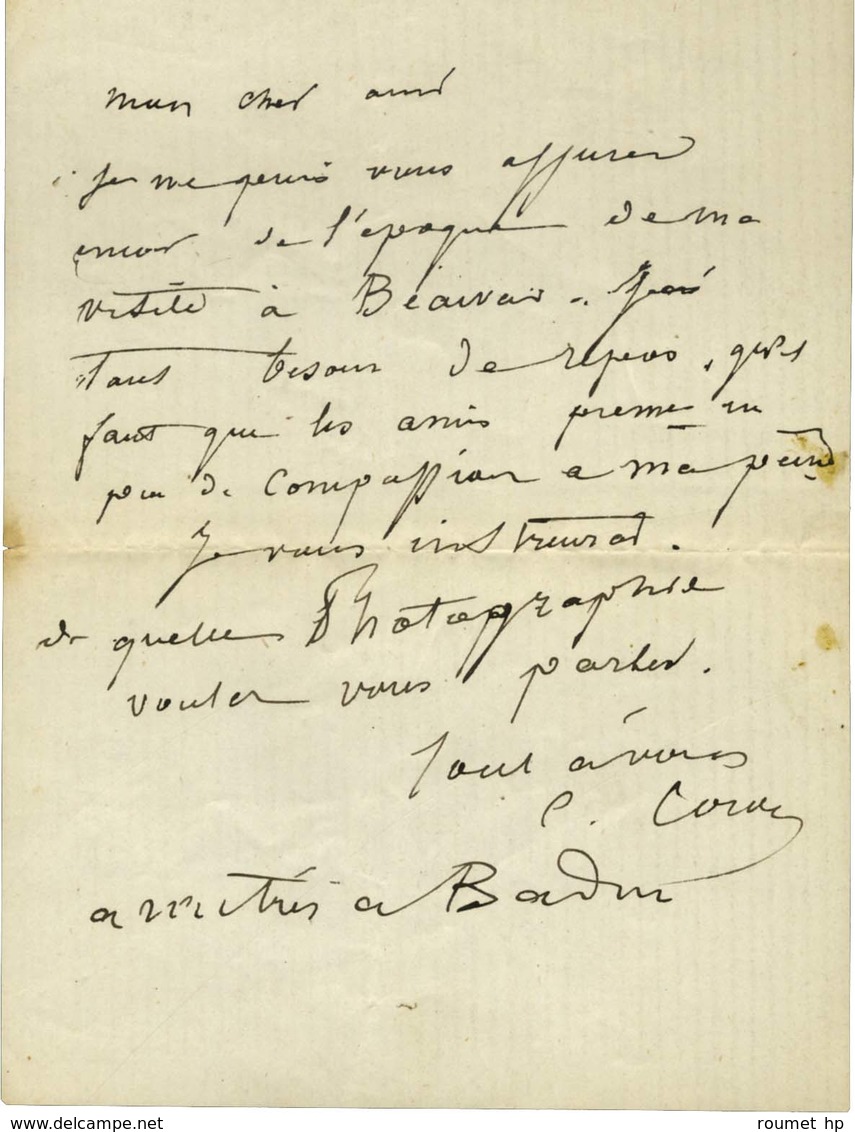 mon cher ami
Je ne puis vous assurer
encor de l'époque de ma
visite à Béauvais. J'ai
tant besoin de repos, qu'il
faut que les amis prenne un
peu de compassion a ma peine
Je vous instruirai.
de quelle Photographie
voulez vous parler.
Tout à vous
C. Corot
a a Badin
roumet hp